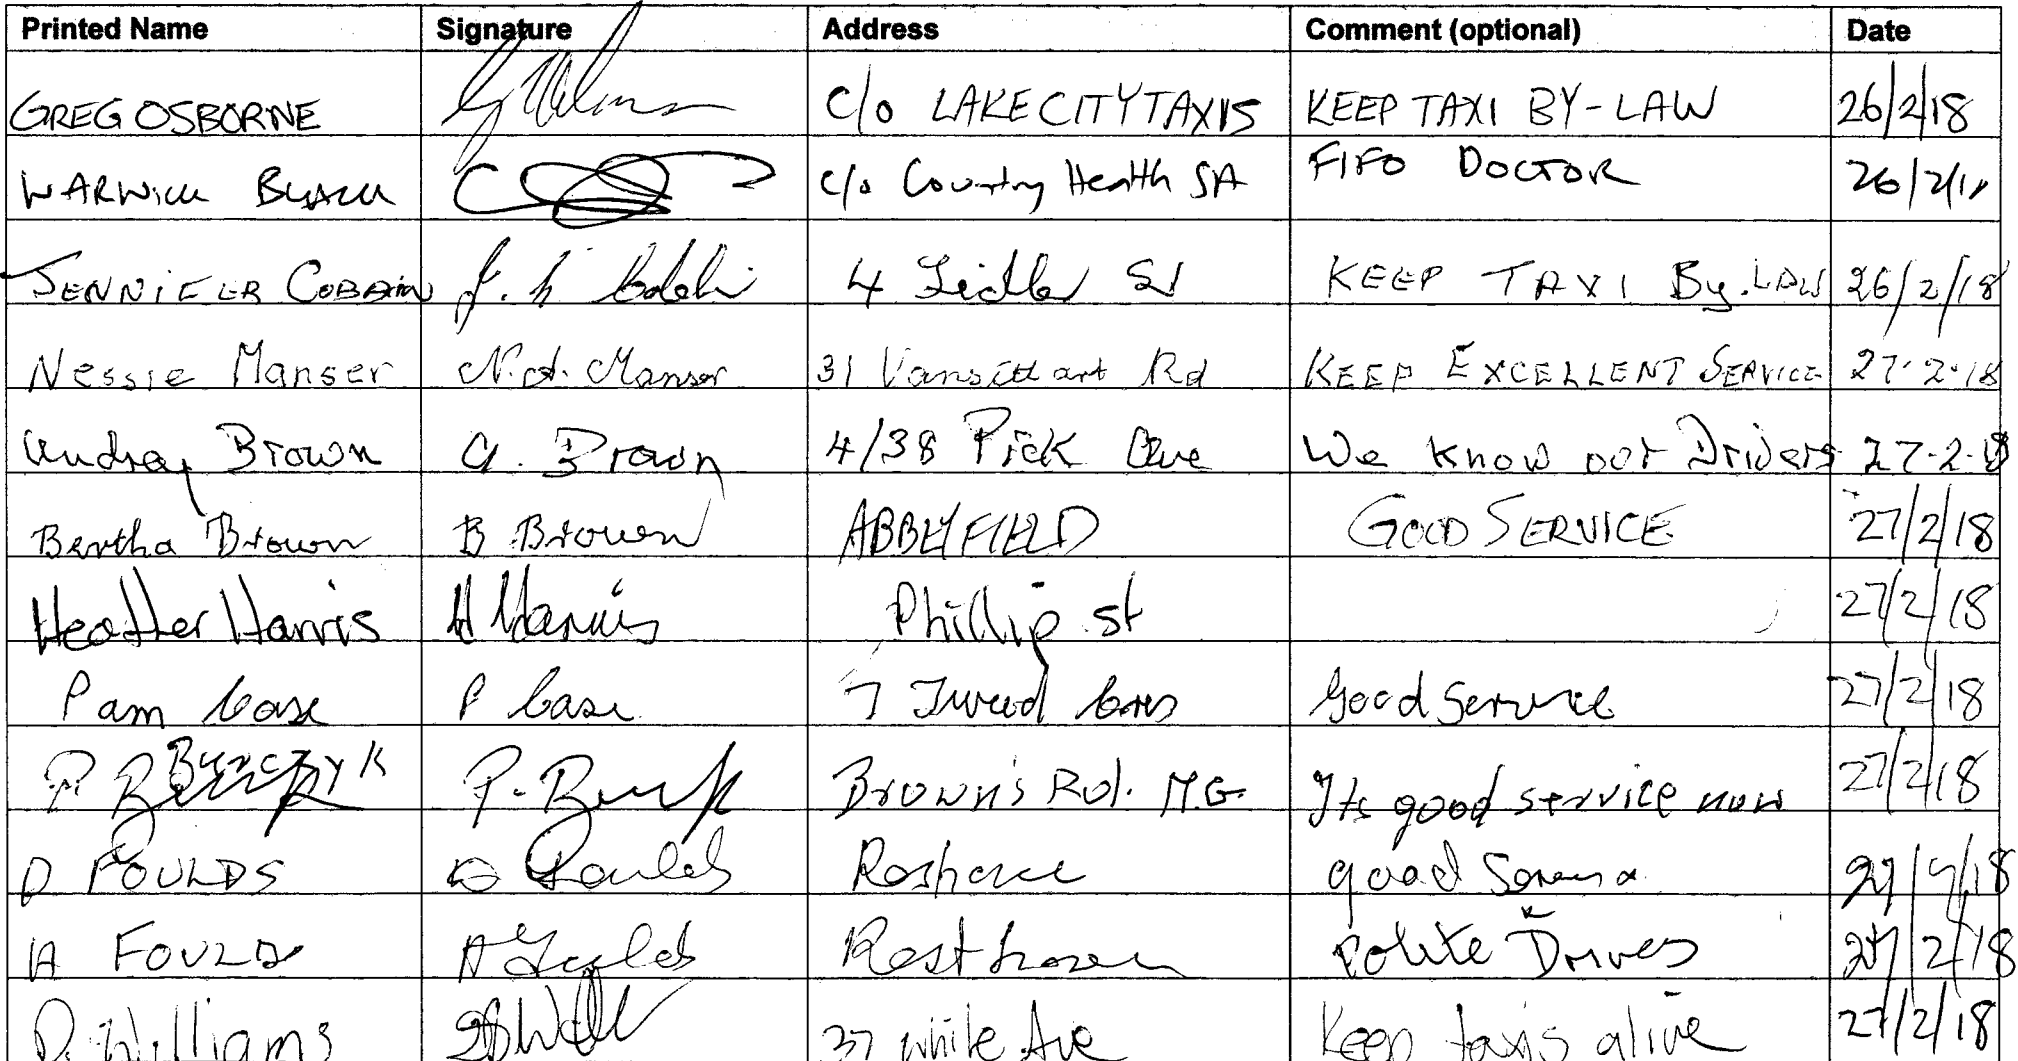 Printed Name Signature Address Comment (optional) Date
GREG OSBORNE C/o LAKE CITY TAXIS KEEP TAXI BY-LAW 26/2/18
WARWICK c/o Country Health SA FIFO DOCTOR 26/2/18
JENNIFER COBBAIN 4 St KEEP TAXI By.LAW 26/2/18
Nessie Manser N.A. Manser 31 Vansittart Rd KEEP EXCELLENT SERVICE 27-2-18
Audrey Brown A. Brown 4/38 Pick Ave We know our Drivers 27-2-18
Bertha Brown B Brown ABBEYFIELD GOOD SERVICE 27/2/18
Heather Harris H Harris Phillip st 27/2/18
Pam Case P Case 7 Tweed Cres Good Service 27/2/18
P Brown's Rd. M.G. Its good service now 27/2/18
D FOULDS D Foulds good 27/2/18
A FOULDS A Foulds Resthaven Polite Drivers 27/2/18
D. Williams 37 White Ave Keep taxis alive 27/2/18